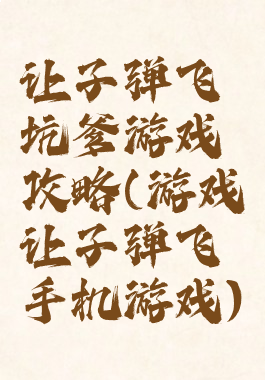 让子弹飞
坑爹游戏
攻略(游戏
让子弹飞
手机游戏)